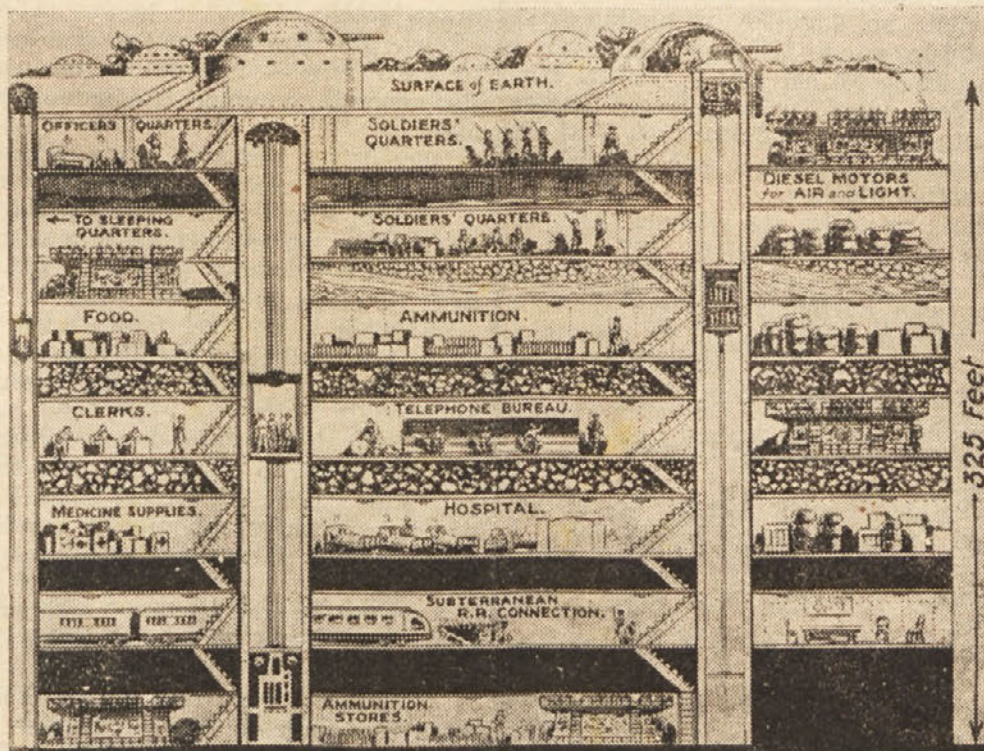 SURFACE of EARTH.
OFFICERS' QUARTERS.
SOLDIERS'
QUARTERS.
DIESEL MOTORS
for AIR and LIGHT.
← TO SLEEPING
QUARTERS.
SOLDIERS' QUARTERS.
FOOD.
AMMUNITION.
CLERKS.
TELEPHONE BUREAU.
MEDICINE SUPPLIES.
HOSPITAL.
SUBTERRANEAN
R.R. CONNECTION.
AMMUNITION
STORES.
325 Feet